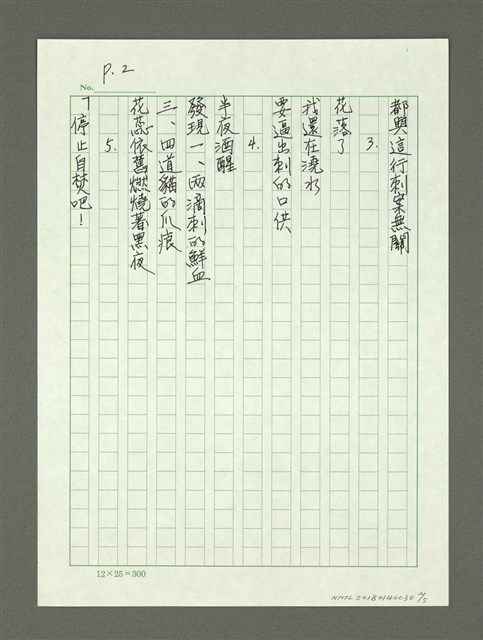 P.2
No.
都與這行刺案無關
3.
花落了
我還在澆水
要逼出刺的口供
4.
半夜酒醒
發現一、兩滴刺的鮮血
三、四道貓的爪痕
花蕊依舊燃燒著黑夜
5.
「停止自焚吧!
12×25=300
NMTL 20180140030 2/5